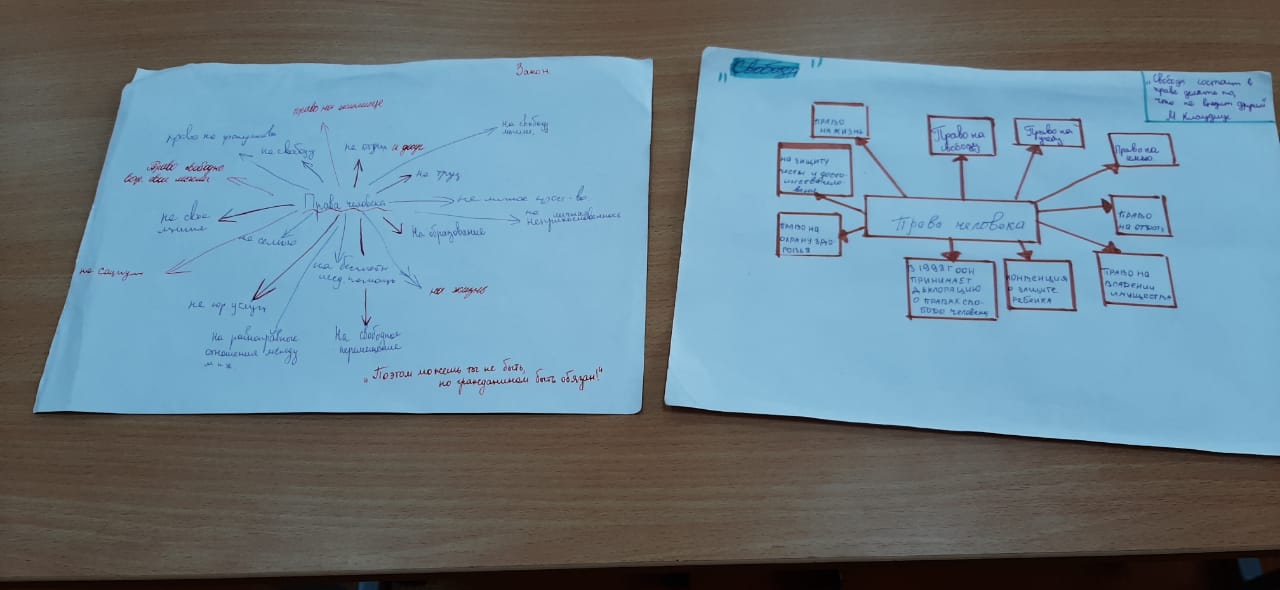 Закон
право на жилище
на свободу
мысли,
право на
на свободу
на отдых и досуг
на труд
Право свободно
выр. свои мысли
Права человека
на личное прост-во
на личная
неприкосновенность
на свое
мнение
на семью
На образование
на
на бесплатн
мед. помощь
на жизнь
на юр услуги
На равноправные
отношения между
м и ж
На свободное
перемещение
„Поэтом можешь ты не быть,
но гражданином быть обязан!"
"Свобода"
„Свобода состоит в
праве делать то,
что не вредит другим"
М
ПРАВО
НА ЖИЗНЬ
Право на
свободу
Право на
труд
Право на
семью
НА ЗАЩИТУ
ЧЕСТИ И
ПРАВО НА
ОХРАНУ ЗДО-
РОВЬЯ
Права человека
ПРАВО
НА ОТДЫХ
В ООН
ПРИНИМАЕТ
О ПРАВАХ
человека
КОНВЕНЦИЯ
О ЗАЩИТЕ
РЕБЁНКА
ПРАВО НА
ВЛАДЕНИИ
ИМУЩЕСТВА